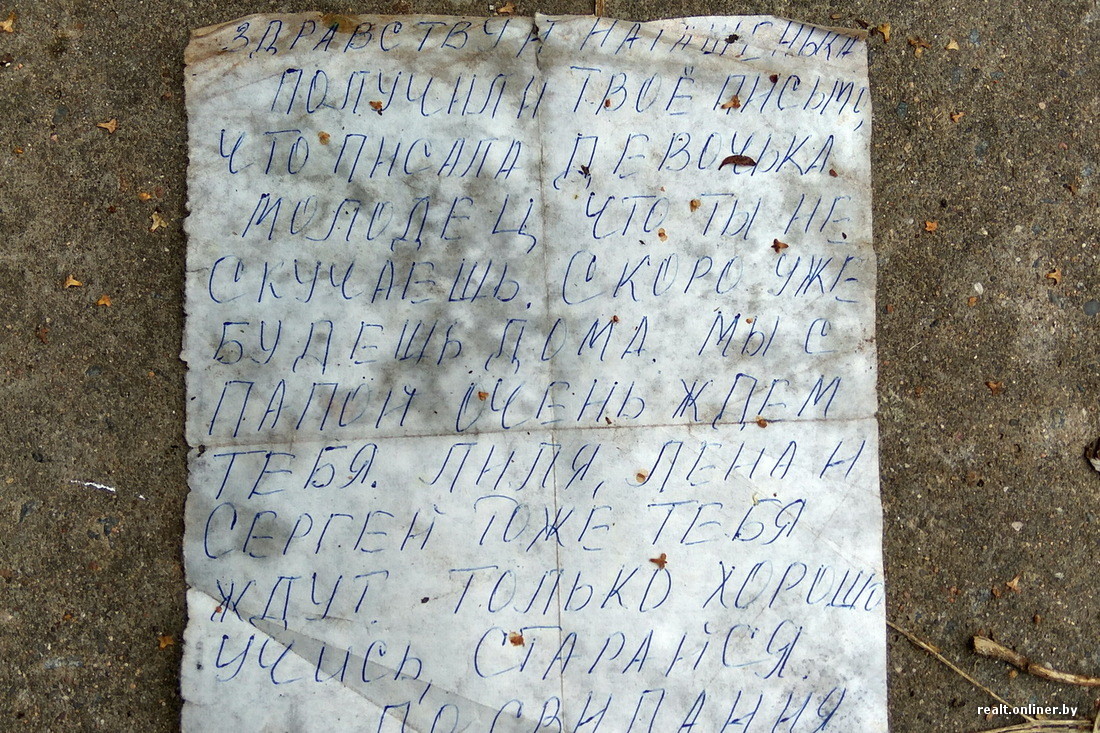 ЗДРАВСТВУЙ НАТАШЕНЬКА
ПОЛУЧИЛИ ТВОЁ ПИСЬМО,
ЧТО ПИСАЛА ДЕВОЧЬКА.
МОЛОДЕЦ ЧТО ТЫ НЕ
СКУЧАЕШЬ. СКОРО УЖЕ
БУДЕШЬ ДОМА. МЫ С
ПАПОЙ ОЧЕНЬ ЖДЕМ
ТЕБЯ. ЛИЛЯ, ЛЕНА И
СЕРГЕЙ ТОЖЕ ТЕБЯ
ЖДУТ. ТОЛЬКО ХОРОШО
УЧИСЬ, СТАРАЙСЯ.
ДО СВИДАНИЯ
realt.onliner.by